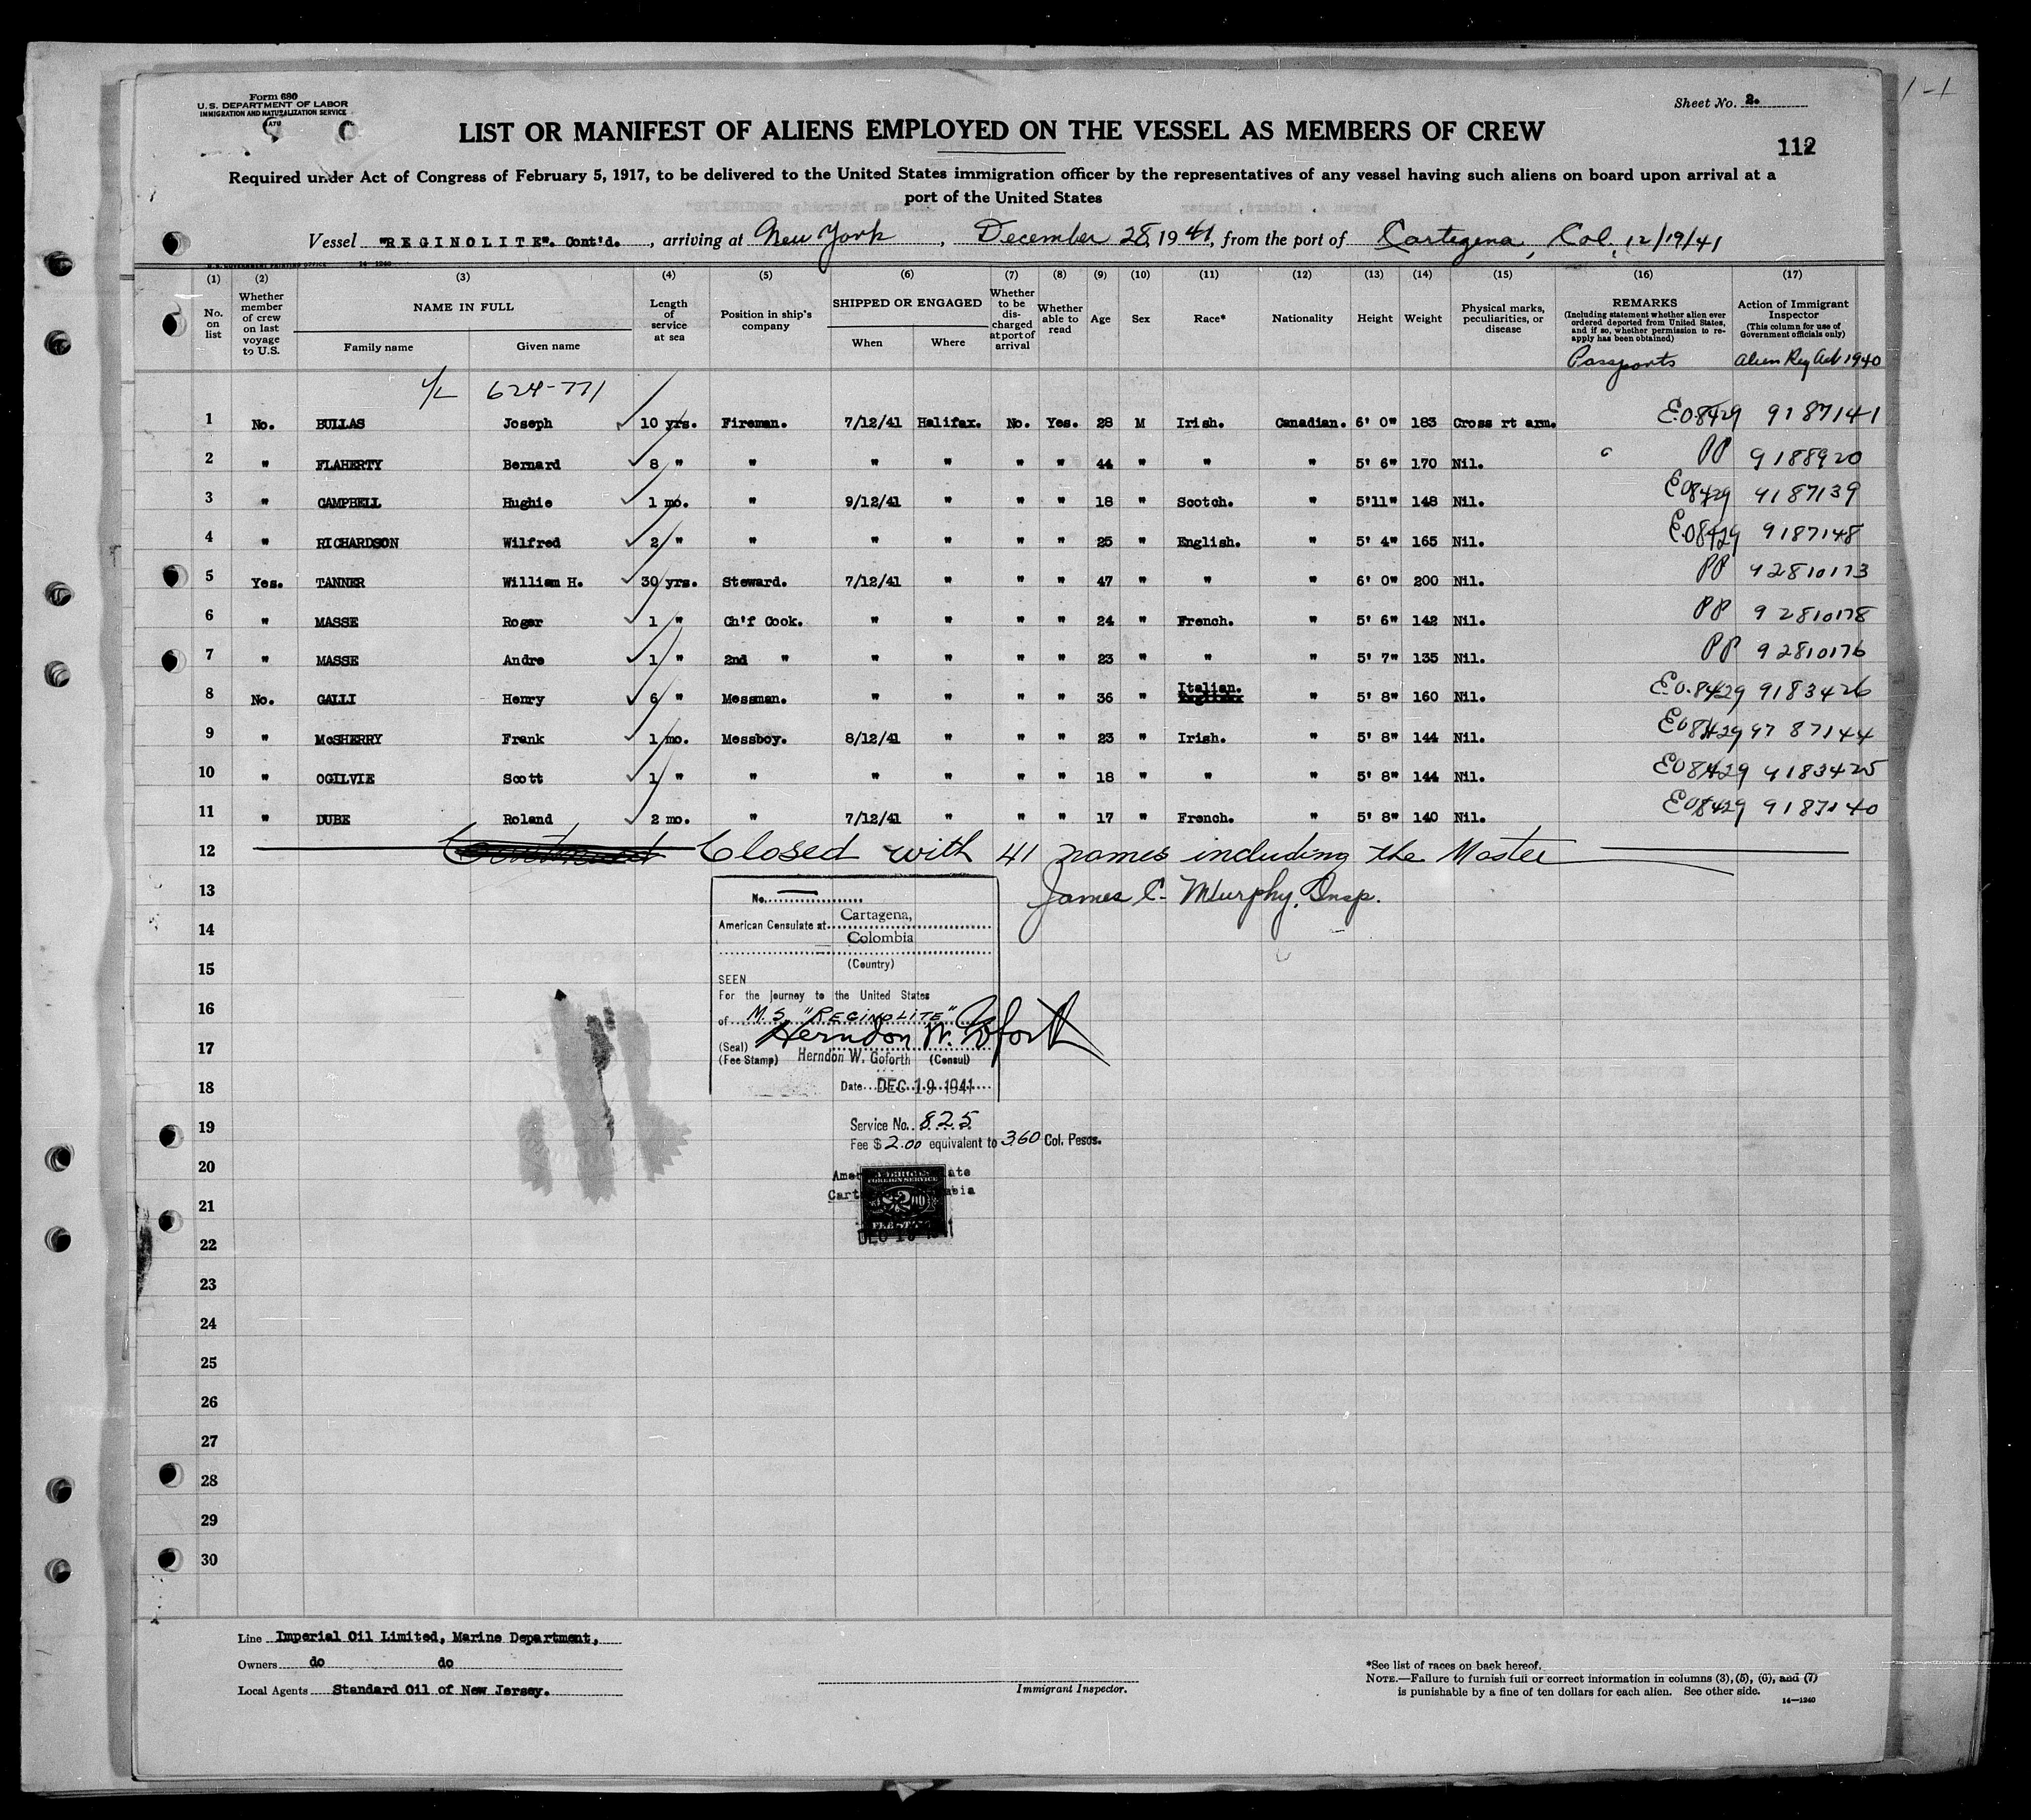 Form 680
U.S. DEPARTMENT OF LABOR
IMMIGRATION AND NATURALIZATION SERVICE
Sheet No. 2.
1-1
LIST OR MANIFEST OF ALIENS EMPLOYED ON THE VESSEL AS MEMBERS OF CREW
112
Required under Act of Congress of February 5, 1917, to be delivered to the United States immigration officer by the representatives of any vessel having such aliens on board upon arrival at a
port of the United States
Vessel "REGINOLITE". Cont'd. , arriving at New York , December 28, 1941, from the port of Cartegena, Col. 12/19/41
U.S. GOVERNMENT PRINTING OFFICE 14-1240
(1) (2) (3) (4) (5) (6) (7) (8) (9) (10) (11) (12) (13) (14) (15) (16) (17)
No. on list
Whether member of crew on last voyage to U.S.
NAME IN FULL
Family name Given name
Length of service at sea
Position in ship's company
SHIPPED OR ENGAGED
When Where
Whether to be discharged at port of arrival
Whether able to read
Age Sex Race* Nationality Height Weight
Physical marks, peculiarities, or disease
REMARKS
(Including statement whether alien ever ordered deported from United States, and if so, whether permission to re-apply has been obtained)
Passports
Action of Immigrant Inspector
(This column for use of Government officials only)
Alien Reg Act 1940
624-771
1 No. BULLAS Joseph 10 yrs. Fireman. 7/12/41 Halifax. No. Yes. 28 M Irish. Canadian. 6' 0" 183 Cross rt arm. E.08429 9187141
2 " FLAHERTY Bernard 8 " " " " " " 44 " " " 5' 6" 170 Nil. PP 9188920
3 " CAMPBELL Hughie 1 mo. " 9/12/41 " " " 18 " Scotch. " 5'11" 148 Nil. E08429 9187139
4 " RICHARDSON Wilfred 2 " " " " " " 25 " English. " 5' 4" 165 Nil. E08429 9187148
5 Yes. TANNER William H. 30 yrs. Steward. 7/12/41 " " " 47 " " " 6' 0" 200 Nil. PP 92810173
6 " MASSE Roger 1 " Ch'f Cook. " " " " 24 " French. " 5' 6" 142 Nil. PP 92810178
7 " MASSE Andre 1 " 2nd " " " " " 23 " " " 5' 7" 135 Nil. PP 92810176
8 No. GALLI Henry 6 " Messman. " " " " 36 " Italian. " 5' 8" 160 Nil. E.08429 9183426
9 " McSHERRY Frank 1 mo. Messboy. 8/12/41 " " " 23 " Irish. " 5' 8" 144 Nil. E08429 9787144
10 " OGILVIE Scott 1 " " " " " " 18 " " " 5' 8" 144 Nil. E08429 9183425
11 " DUBE Roland 2 mo. " 7/12/41 " " " 17 " French. " 5' 8" 140 Nil. E08429 9187140
12 Closed with 41 names including the Master
13 James C. Murphy, Insp.
14
15
16
17
18
19
20
21
22
23
24
25
26
27
28
29
30
No.
American Consulate at Cartagena,
Colombia
(Country)
SEEN
For the journey to the United States
of M.S. "REGINOLITE"
Herndon W. Goforth
(Seal)
(Fee Stamp) Herndon W. Goforth (Consul)
Date DEC 19 1941
Service No. 825
Fee $ 2.00 equivalent to 3.60 Col. Pesos.
FOREIGN SERVICE
$2.00
DEC 19
Line Imperial Oil Limited, Marine Department,
Owners do do
Local Agents Standard Oil of New Jersey.
Immigrant Inspector.
*See list of races on back hereof.
NOTE.—Failure to furnish full or correct information in columns (3), (5), (6), and (7)
is punishable by a fine of ten dollars for each alien. See other side.
14—1240